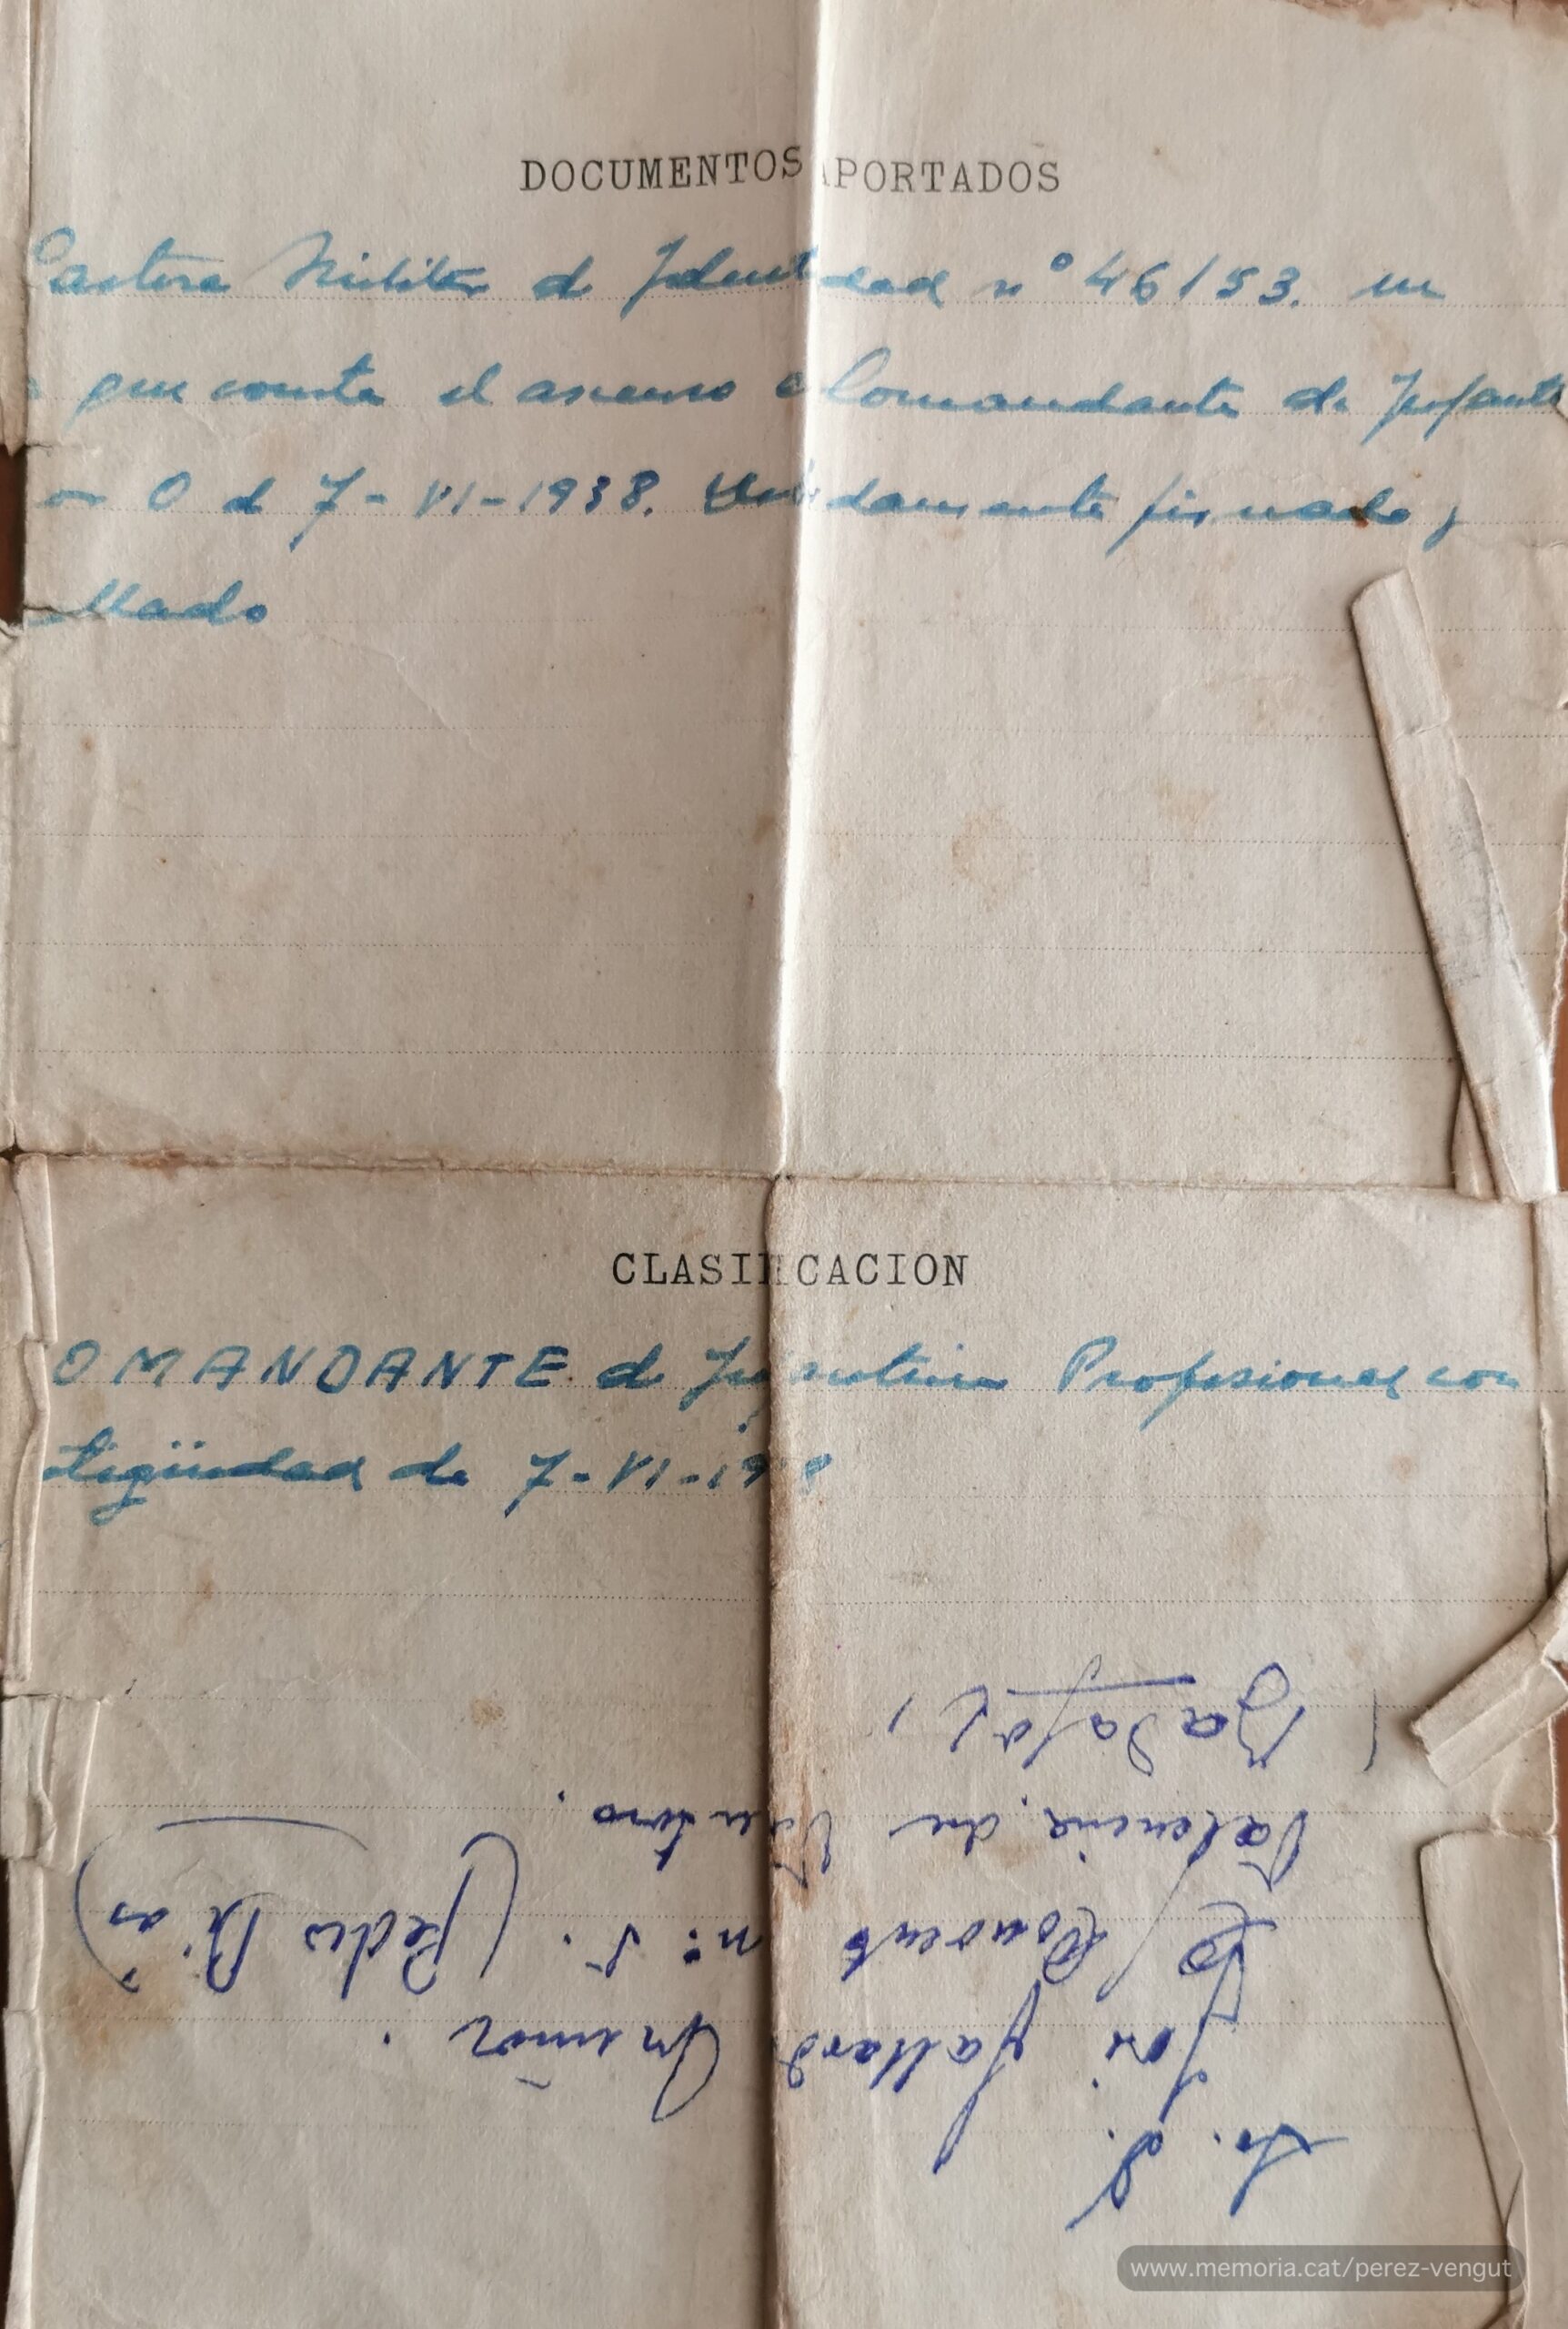 DOCUMENTOS APORTADOS
Cartera Militar de Identidad nº 46153. en
que consta el ascenso a Comandante de Infante
or O d 7-VI-1938. Debidamente firmado y
ellado
CLASIFICACION
OMANDANTE de Infanteria Profesional con
tigüedad de 7-VI-1938
Sr. D.
José Gallard
C/ Convento nº 5. (Pedro Dias)
Valencia du Ventoso.
(Badajoz)
www.memoria.cat/perez-vengut